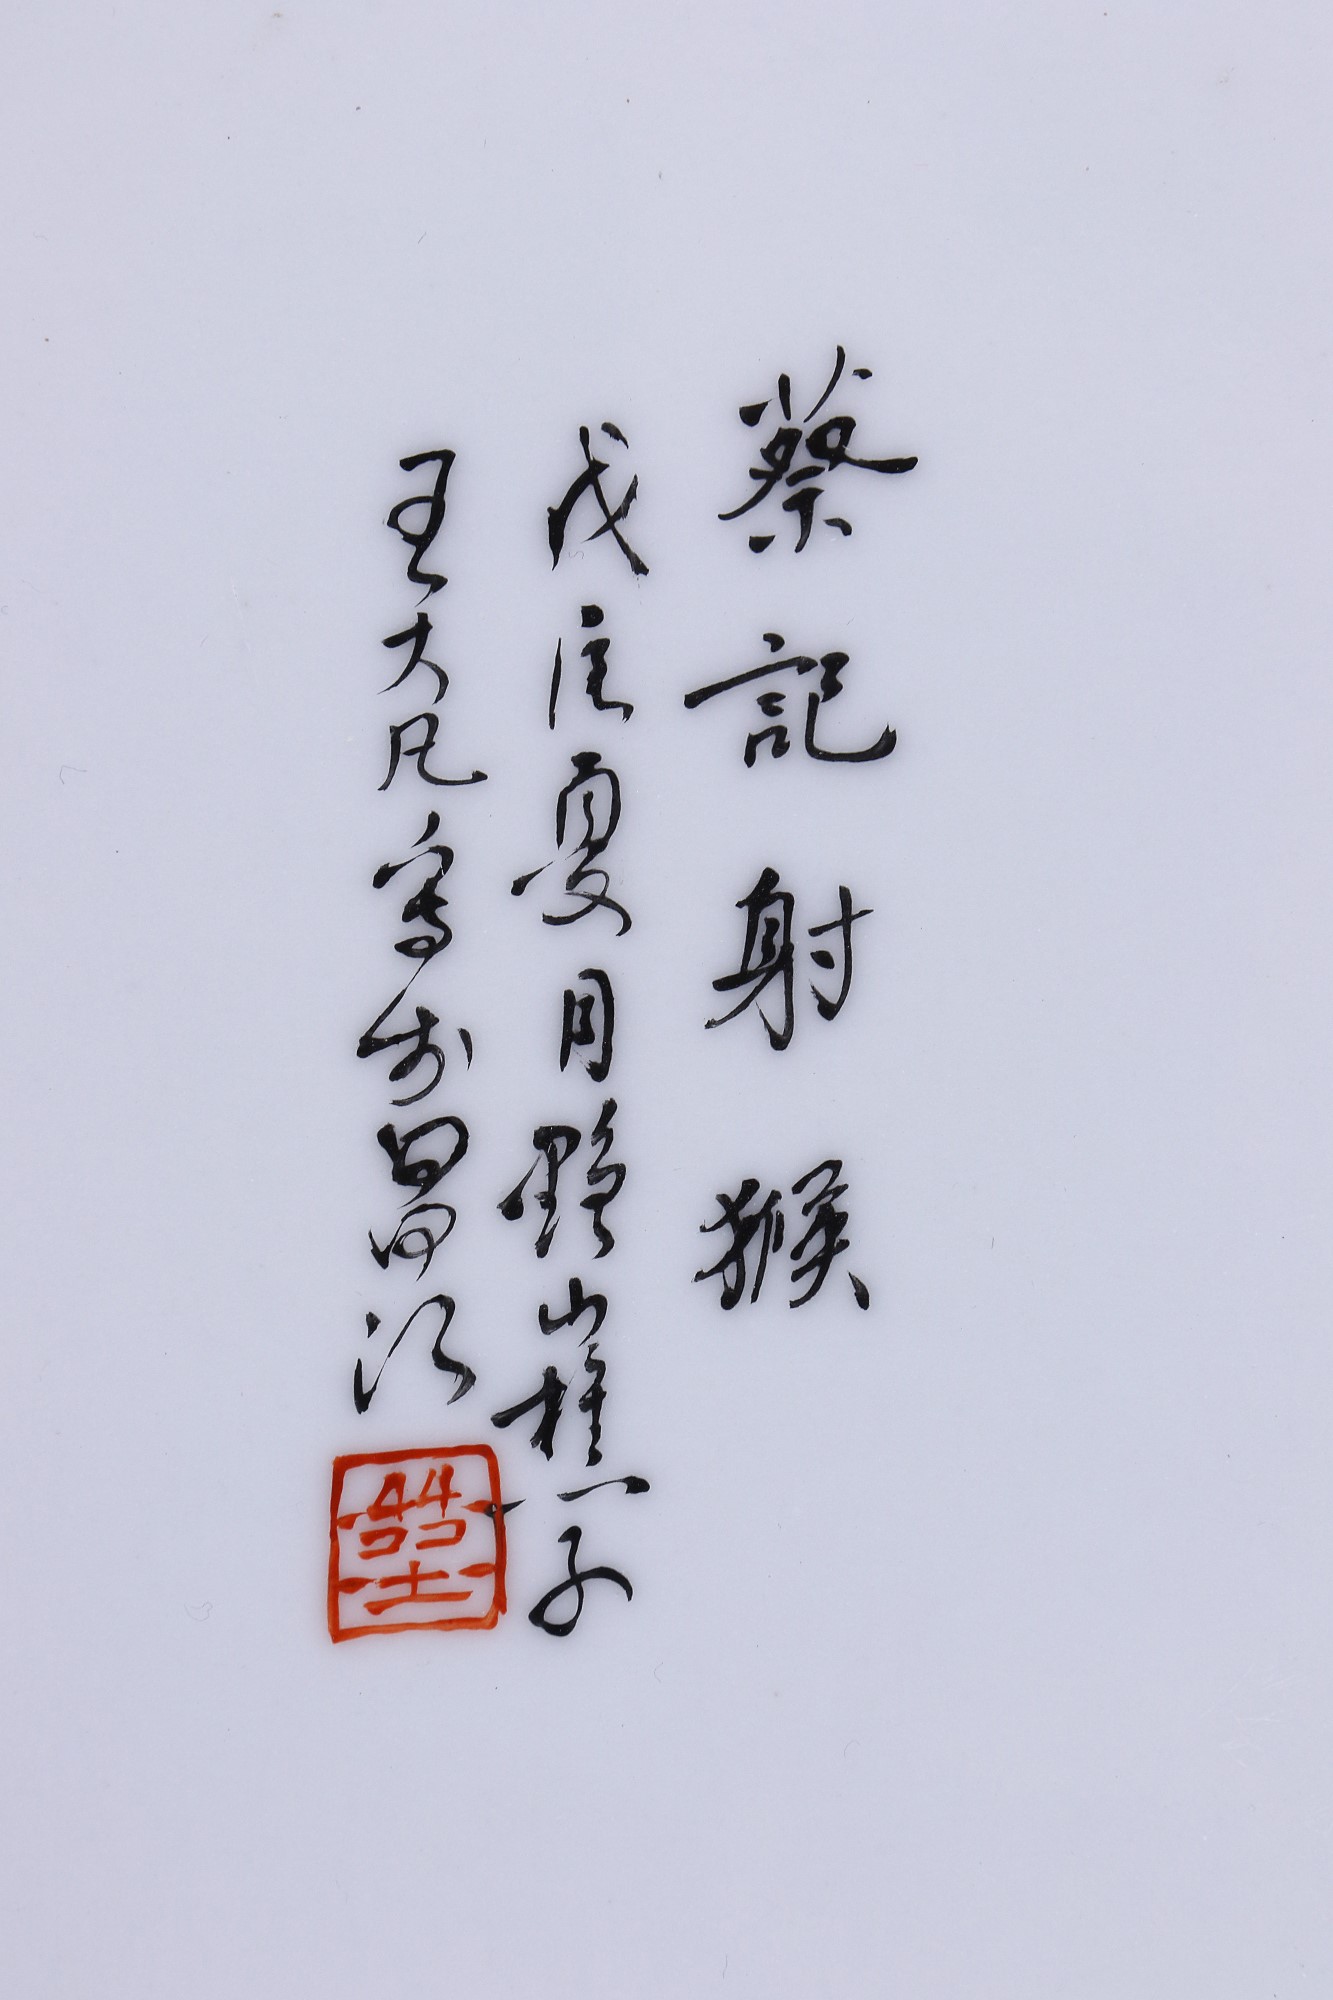 蔡記射猴
戊辰夏月黟山樵子
王大凡寫於昌江